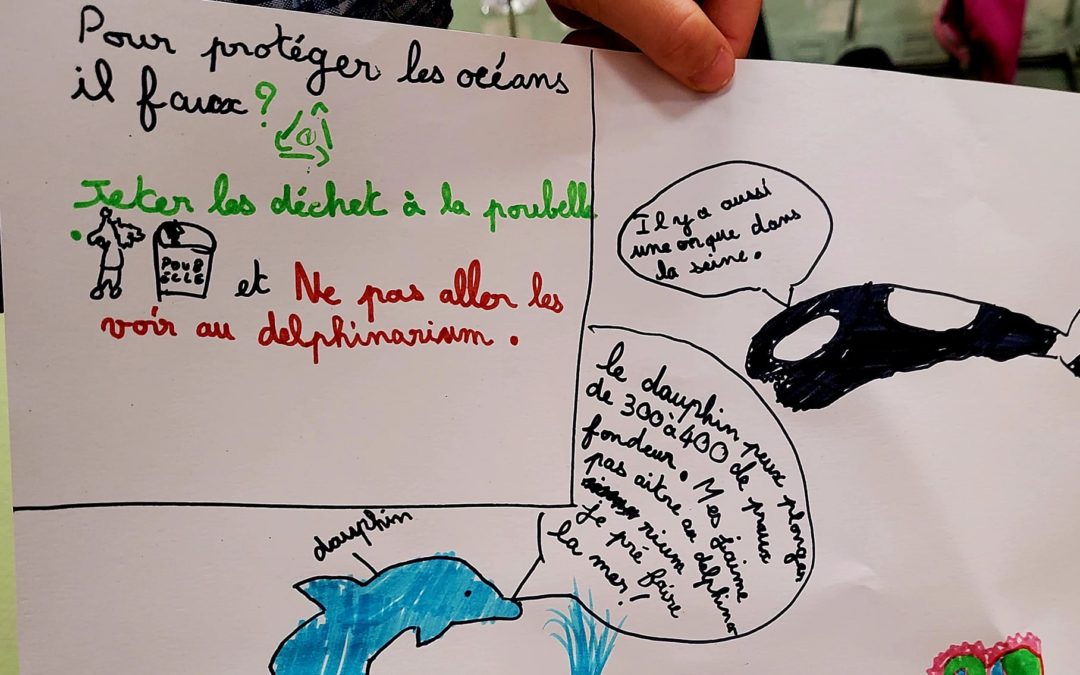 Pour protéger les océans
il faux ?
Jeter les déchet à la poubelle
POUB
ELLE
et Ne pas aller les
voir au delphinarium.
Il y a aussi
une orque dans
la seine.
le dauphin peux plonger
de 300 à 400 de praux
fondeur. Mes j'aime
pas aitre au delphina
rium
Je pré faire
la mer!
dauphin